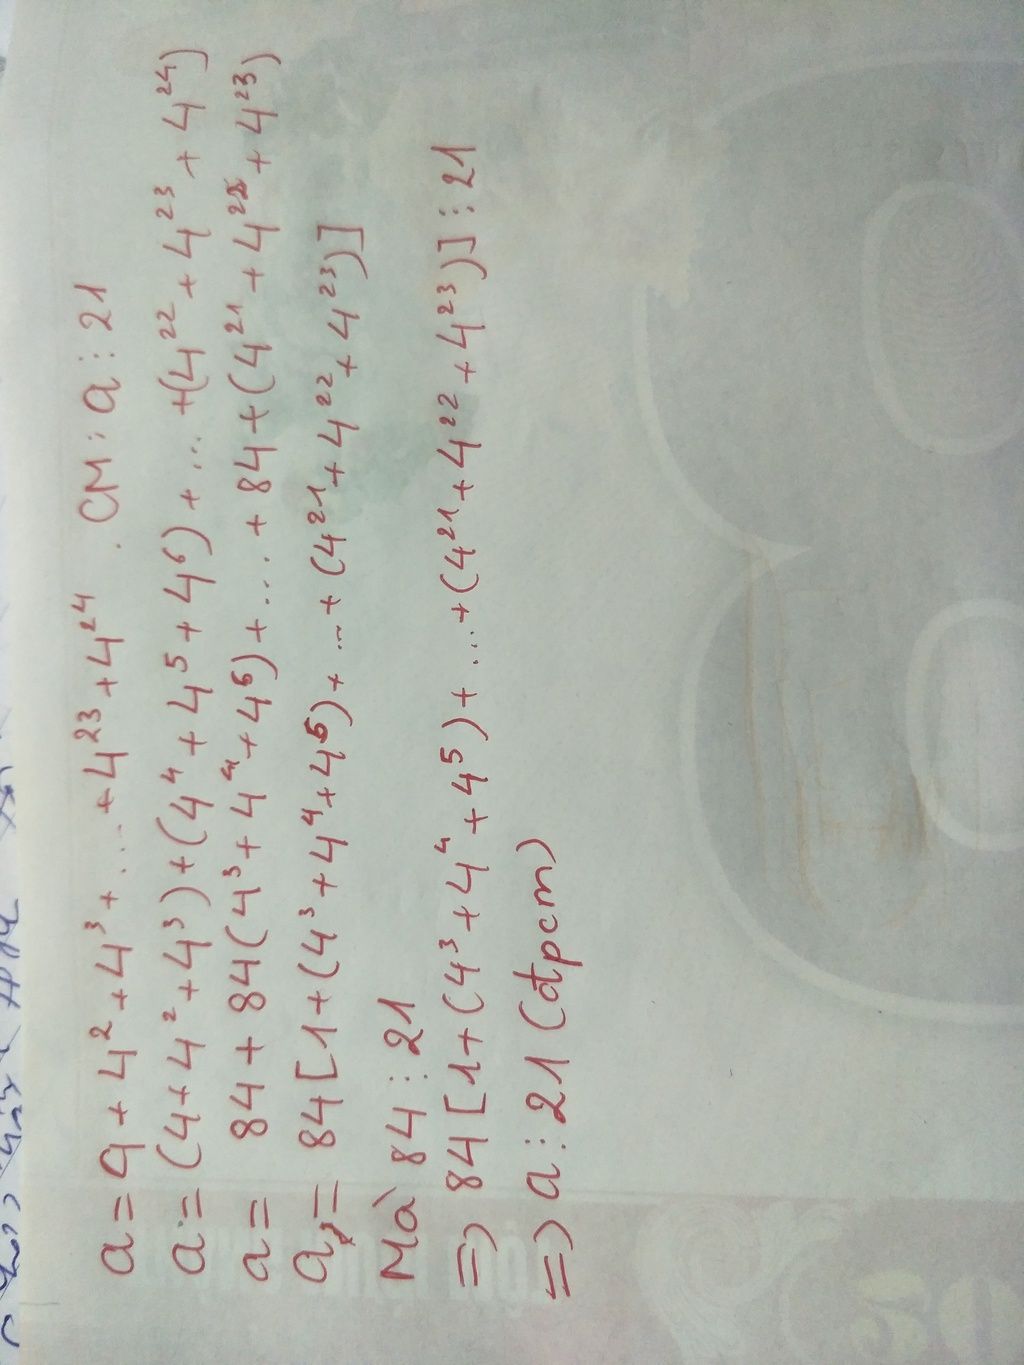 a = 4 + 4² + 4³ + ... + 4²³ + 4²⁴ . CM: a ⋮ 21
a = (4 + 4² + 4³) + (4⁴ + 4⁵ + 4⁶) + ... + (4²² + 4²³ + 4²⁴)
a = 84 + 84(4³ + 4⁴ + 4⁵) + ... + 84 + (4²¹ + 4²² + 4²³)
a = 84[1 + (4³ + 4⁴ + 4⁵) + ... + (4²¹ + 4²² + 4²³)]
Mà 84 ⋮ 21
=> 84[1 + (4³ + 4⁴ + 4⁵) + ... + (4²¹ + 4²² + 4²³)] ⋮ 21
=> a ⋮ 21 (đpcm)